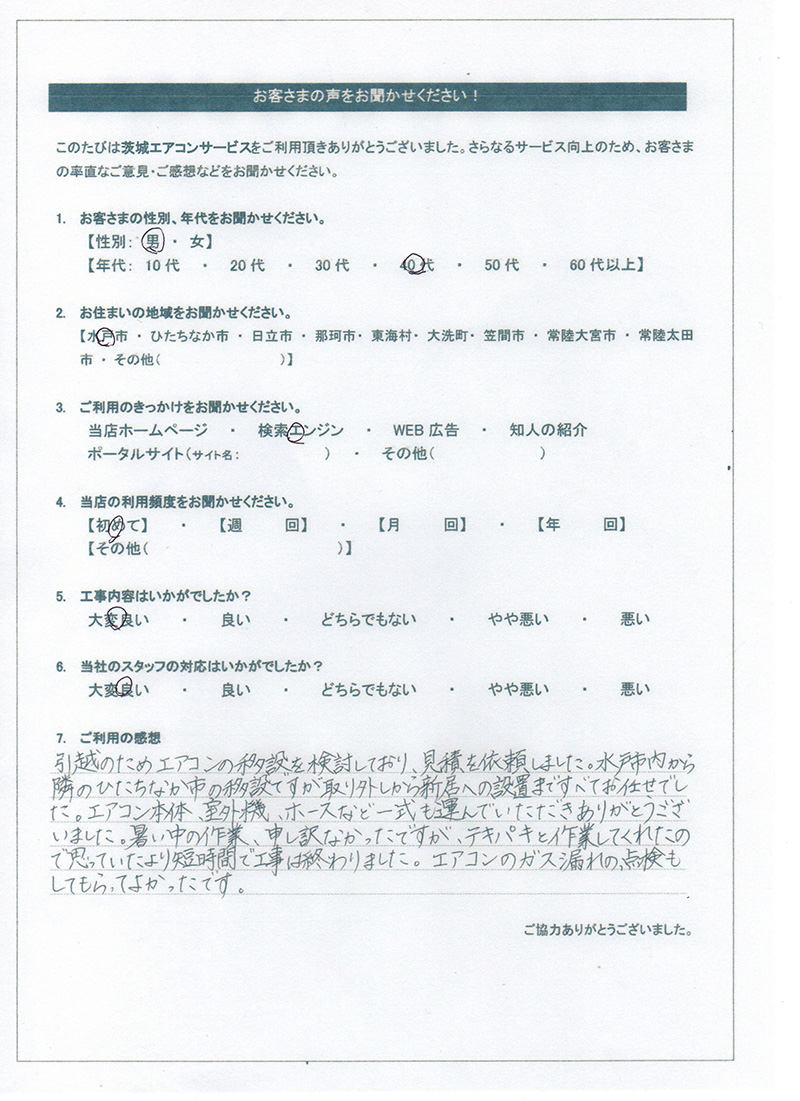 お客さまの声をお聞かせください！
このたびは茨城エアコンサービスをご利用頂きありがとうございました。さらなるサービス向上のため、お客さま
の率直なご意見・ご感想などをお聞かせください。
1. お客さまの性別、年代をお聞かせください。
【性別： 男 ・ 女】
【年代： 10代 ・ 20代 ・ 30代 ・ 40代 ・ 50代 ・ 60代以上】
2. お住まいの地域をお聞かせください。
【水戸市 ・ ひたちなか市 ・ 日立市 ・ 那珂市・ 東海村・ 大洗町・ 笠間市 ・ 常陸大宮市 ・ 常陸太田
市 ・ その他（ ）】
3. ご利用のきっかけをお聞かせください。
当店ホームページ ・ 検索エンジン ・ WEB広告 ・ 知人の紹介
ポータルサイト（サイト名： ） ・ その他（ ）
4. 当店の利用頻度をお聞かせください。
【初めて】 ・ 【週 回】 ・ 【月 回】 ・ 【年 回】
【その他（ ）】
5. 工事内容はいかがでしたか？
大変良い ・ 良い ・ どちらでもない ・ やや悪い ・ 悪い
6. 当社のスタッフの対応はいかがでしたか？
大変良い ・ 良い ・ どちらでもない ・ やや悪い ・ 悪い
7. ご利用の感想
引越のためエアコンの移設を検討しており、見積を依頼しました。水戸市内から
隣のひたちなか市の移設ですが取り外しから新居への設置まですべてお任せでし
た。エアコン本体、室外機、ホースなど一式も運んでいただきありがとうござ
いました。暑い中の作業、申し訳なかったですが、テキパキと作業してくれたの
で思っていたより短時間で工事は終わりました。エアコンのガス漏れの点検も
してもらってよかったです。
ご協力ありがとうございました。